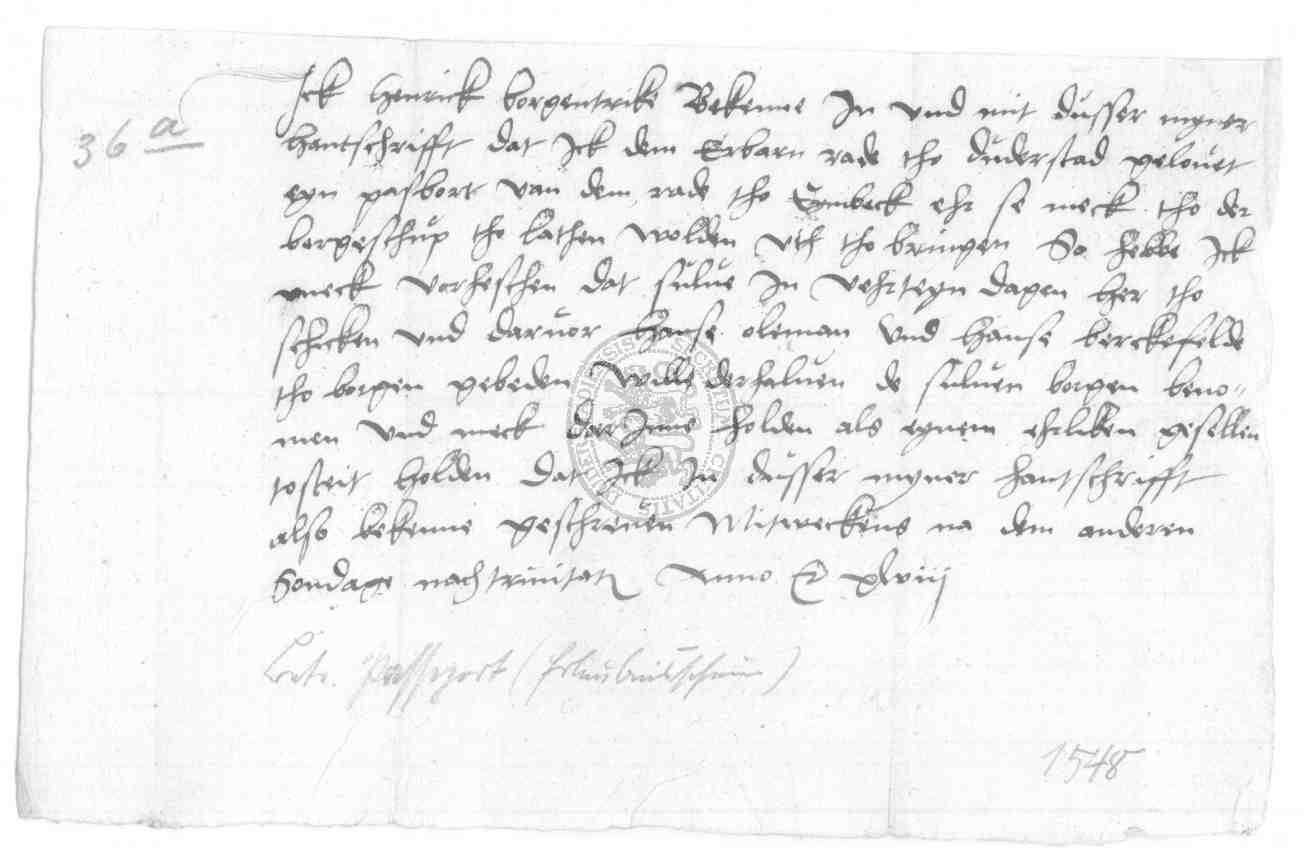 36 a
Ick Henrick borgentrike Bekenne In vnd mit dusser myner
hantschrifft dat Ick dem Erbarn rade tho duderstad gelouet
eyn pasbort van dem rade tho Embeck ehr se meck tho der
borgeschup tho lathen wolden vth tho bringen So hebbe Ick
meck vorheschen dat sulue In vehrteyn dagen her tho
schicken vnd daruor hanse oleman vnd hanse berckefelde
tho borgen gebeden Wille derhaluen de suluen borgen beno-
men vnd meck dar Inne holden als eynem ehrliken gesellen
tosteit holden Dat Ick In dusser myner hantschrifft
also bekenne geschreuen Mitweckens na dem anderen
Sondage nach trinitat Anno &c xlviij
Betr. Passeport (Erlaubnisschein)
1548